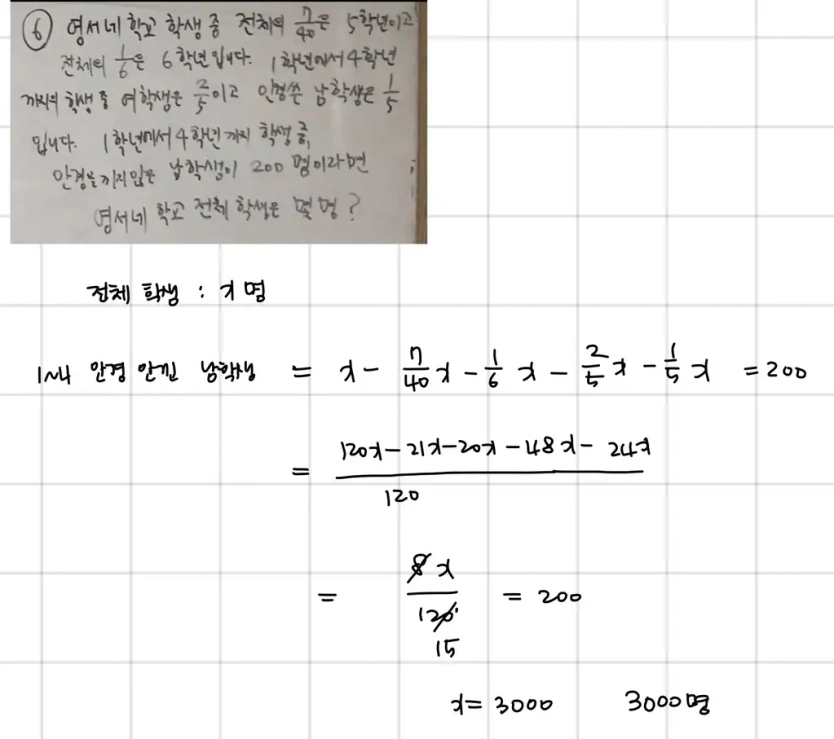 ⑥ 영서네 학교 학생 중 전체의 7/40은 5학년이고
전체의 1/6은 6학년입니다. 1학년에서 4학년
까지의 학생 중 여학생은 2/5이고 안경쓴 남학생은 1/5
입니다. 1학년에서 4학년까지 학생 중,
안경을 끼지않은 남학생이 200명이라면
영서네 학교 전체 학생은 몇 명?
전체 학생 : x명
1~4 안경 안낀 남학생 = x - 7/40 x - 1/6 x - 2/5 x - 1/5 x = 200
= (120x - 21x - 20x - 48x - 24x) / 120
= 8x / 120 = 200
15
x = 3000 3000명